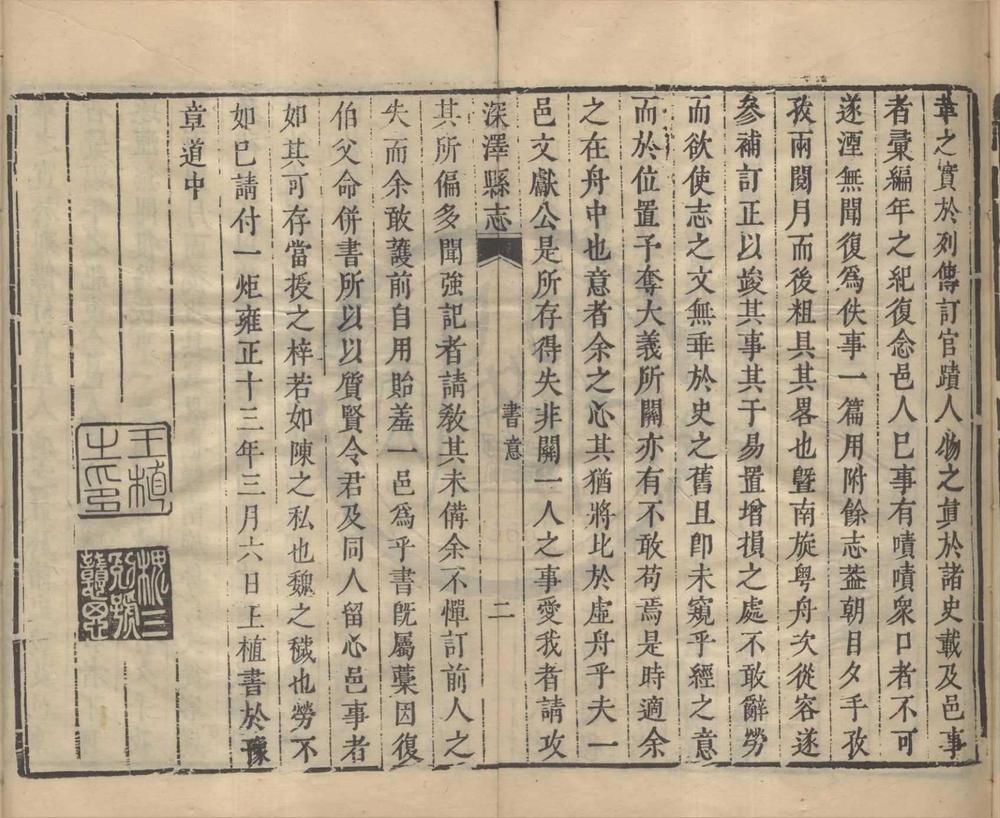 章之實於列傳訂官蹟人物之眞於諸史載及邑事
者彙編年之紀復念邑人巳事有嘖嘖衆口者不可
遂湮無聞復爲佚事一篇用附餘志葢朝目夕手孜
孜兩閱月而後粗具其畧也曁南旋粤舟次從容遂
參補訂正以竣其事其于易置增損之處不敢辭勞
而欲使志之文無乖於史之舊且卽未窺乎經之意
而於位置予奪大義所關亦有不敢苟焉是時適余
之在舟中也意者余之心其猶將比於虛舟乎夫一
邑文獻公是所存得失非關一人之事愛我者請攻
深澤縣志 書意 二
其所偏多聞強記者請敎其未備余不憚訂前人之
失而余敢護前自用貽羞一邑爲乎書旣屬藁因復
伯父命併書所以以質賢令君及同人留心邑事者
如其可存當授之梓若如陳之私也魏之穢也勞不
如巳請付一炬雍正十三年三月六日上植書於豫
章道中
王植之印
槐三別號戇思